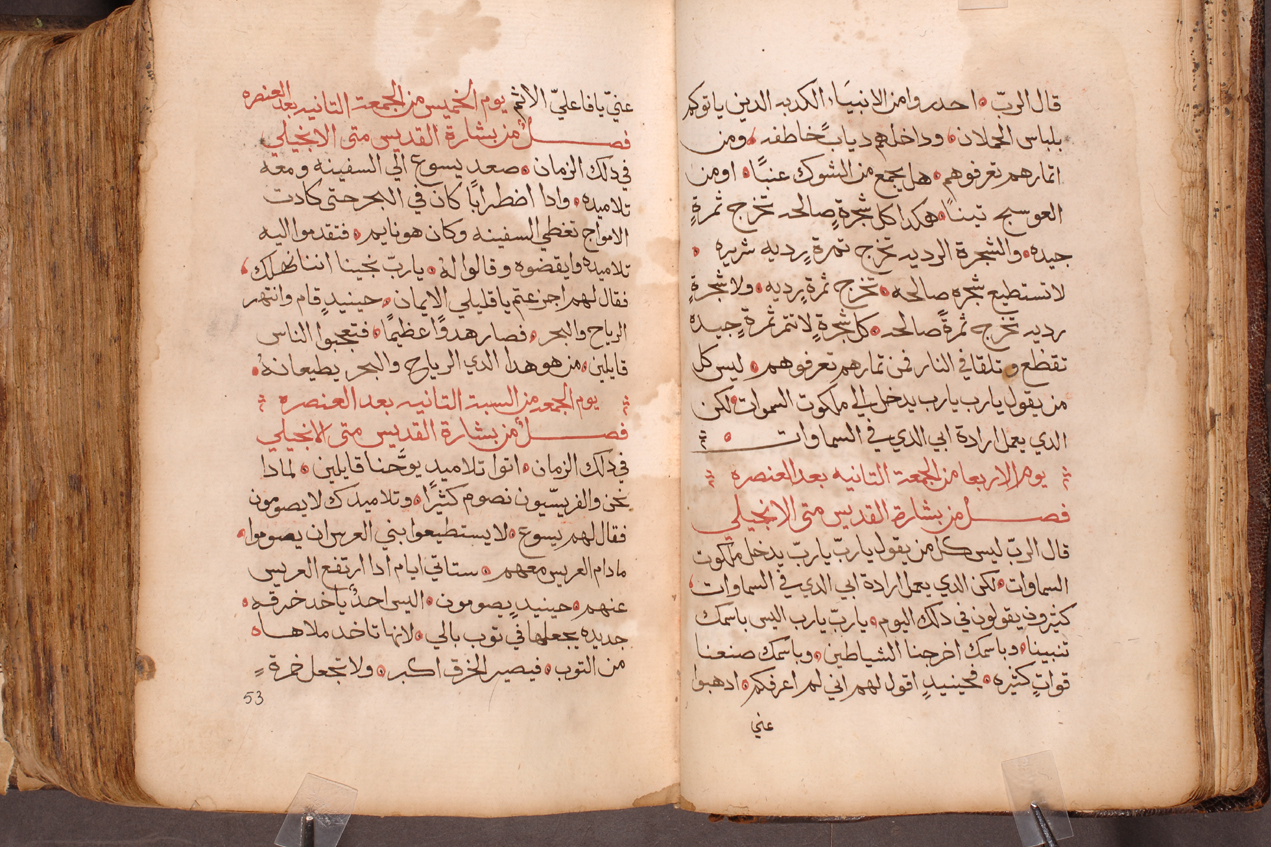 قال الربّ احدروا من الانبياء الكدبه الدين ياتوكم
بلباس الحملان وداخلهم دياب خاطفه ومن
اتمارهم تعرفوهم هل يجمع من الشوك عنبًا اومن
العوسج تينًا هكدا كل شجرةٍ صالحه تخرج ثمرةٍ
جيده والشجرة الرديه تخرج ثمرةٍ رديه شريره
لاتستطيع شجره صالحه تخرج ثمرةٍ رديه ولا شجرةٍ
رديه تخرج ثمرةً صالحه كل شجرةٍ لاتتمر ثمرةٍ جيده
تقطع وتلقا في النار فمن تمارهم تعرفوهم ليس كل
من يقول يارب يارب يدخل الي ملكوت السموات لكن
الدي يعمل ارادة ابي الدي في السماوات
يوم الاربعا من الجمعة التانيه بعد العنصره
فصل من بشارة القديس متى الانجيلي
قال الربّ ليس كل من يقول ياربّ ياربّ يدخل ملكوت
السماوات لكن الدي يعمل ارادة ابي الدي في السماوات
كثيرون يقولون في دلك اليوم ياربّ يارب اليس باسمك
تنبينا وباسمك اخرجنا الشياطين وباسمك صنعنا
قواتٍ كثيره فحينيدٍ اقول لهم اني لم اعرفكم ادهبوا
عني
عنيّ يافاعليّ الاثم يوم الخميس من الجمعة التانيه بعد العنصره
فصل من بشارة القديس متى الانجيلي
في دلك الزمان صعد يسوع الي السفينه ومعه
تلاميده وادا اضطرابًا كان في البحر حتى كادت
الامواج تغطي السفينه وكان هو نايم فتقدموا اليه
تلاميده وايقضوه وقالوا له ياربّ نجينا اننا نهلك
فقال لهم اجزعتم ياقليلي الايمان حينيدٍ قام وانتهر
الرياح والبحر فصار هدوًا عظيمًا فتعجبوا الناس
قايلين من هو هدا الدي الرياح والبحر يطيعانه
يوم الجمعه من السبة التانيه بعد العنصره
فصل من بشارة القديس متى الانجيلي
في دلك الزمان اتوا تلاميد يوحّنا قايلين لمادا
نحن والفريسّيون نصوم كثيرًا وتلاميدك لايصومون
فقال لهم يسوع لايستطيعوا بني العرس ان يصوموا
مادام العريس معهم ستاتي ايام ادا ارتفع العريس
عنهم حينيدٍ يصومون اليس احدٌ ياخد خرقه
جديده يجعلها في توب بالي لانها تاخد ملاها
من التوب فيصير الخرق اكبر ولا تجعل خمرة
53